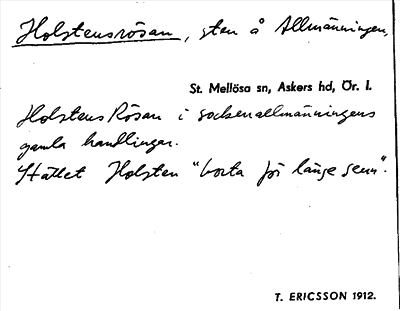 Holstensrösan, sten å Allmänningen,
St. Mellösa sn, Askers hd, Ör. l.
Holstens Rösan i sockenallmänningens
gamla handlingar.
Stället Holsten "borta för länge sen".
T. ERICSSON 1912.